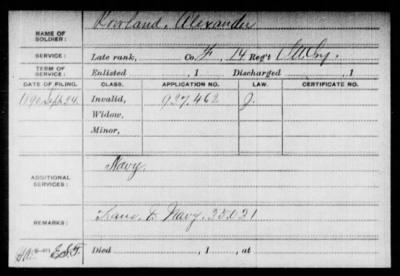 NAME OF SOLDIER: Rowland, Alexander
SERVICE: Late rank, Co. F, 14 Reg't
TERM OF SERVICE: Enlisted , 1 Discharged , 1
DATE OF FILING. CLASS. APPLICATION NO. LAW. CERTIFICATE NO.
1890 Sept. 24. Invalid, 927.462 J.
Widow,
Minor,
ADDITIONAL SERVICES: Navy.
REMARKS: Navy, 35021
Died , 1 , at